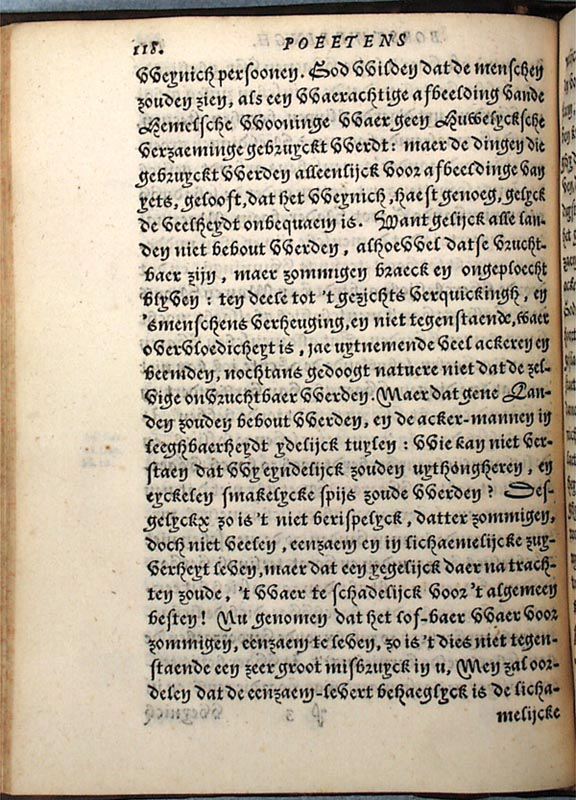 118. POEETENS
VVeynich persoonen. God VVilden dat de menschen
zouden zien, als een VVaerachtige afbeelding vande
Hemelsche VVooninge VVaer geen Huwelycksche
verzaeminge gebruyckt VVerdt: maer de dingen die
gebruyckt VVerden alleenlijck voor afbeeldinge van
yets, gelooft, dat het VVeynich, haest genoeg, gelyck
de veelheydt onbequaem is. Want gelijck alle lan-
den niet bebout VVerden, alhoeVVel datse vrucht-
baer zijn, maer zommigen braeck en ongeploecht
blyven: ten deele tot 't gezichts verquickingh, en
'smenschens verheuging, en niet tegenstaende, waer
overvloedicheyt is, jae uytnemende veel ackeren en
beemden, nochtans gedoogt natuere niet dat de zel-
vige onvruchtbaer VVerden. Maer dat gene Lan-
den zouden bebout VVerden, en de acker-mannen in
leeghbaerheydt ydelijck tuylen: VVie kan niet ver-
staen dat VVy eyndelijck zouden uythongheren, en
eyckelen smakelycke spijs zoude VVerden? Des-
gelyckx zo is 't niet berispelyck, datter zommigen,
doch niet veelen, eenzaem en in lichaemelijcke zuy-
verheyt leven, maer dat een yegelijck daer na trach-
ten zoude, 't VVaer te schadelijck voor 't algemeen
besten! Nu genomen dat het lof-baer VVaer voor
zommigen, eenzaem te leven, zo is 't dies niet tegen-
staende een zeer groot misbruyck in u, Men zal oor-
delen dat de eenzaem-levert behaeglyck is de licha-
melijcke